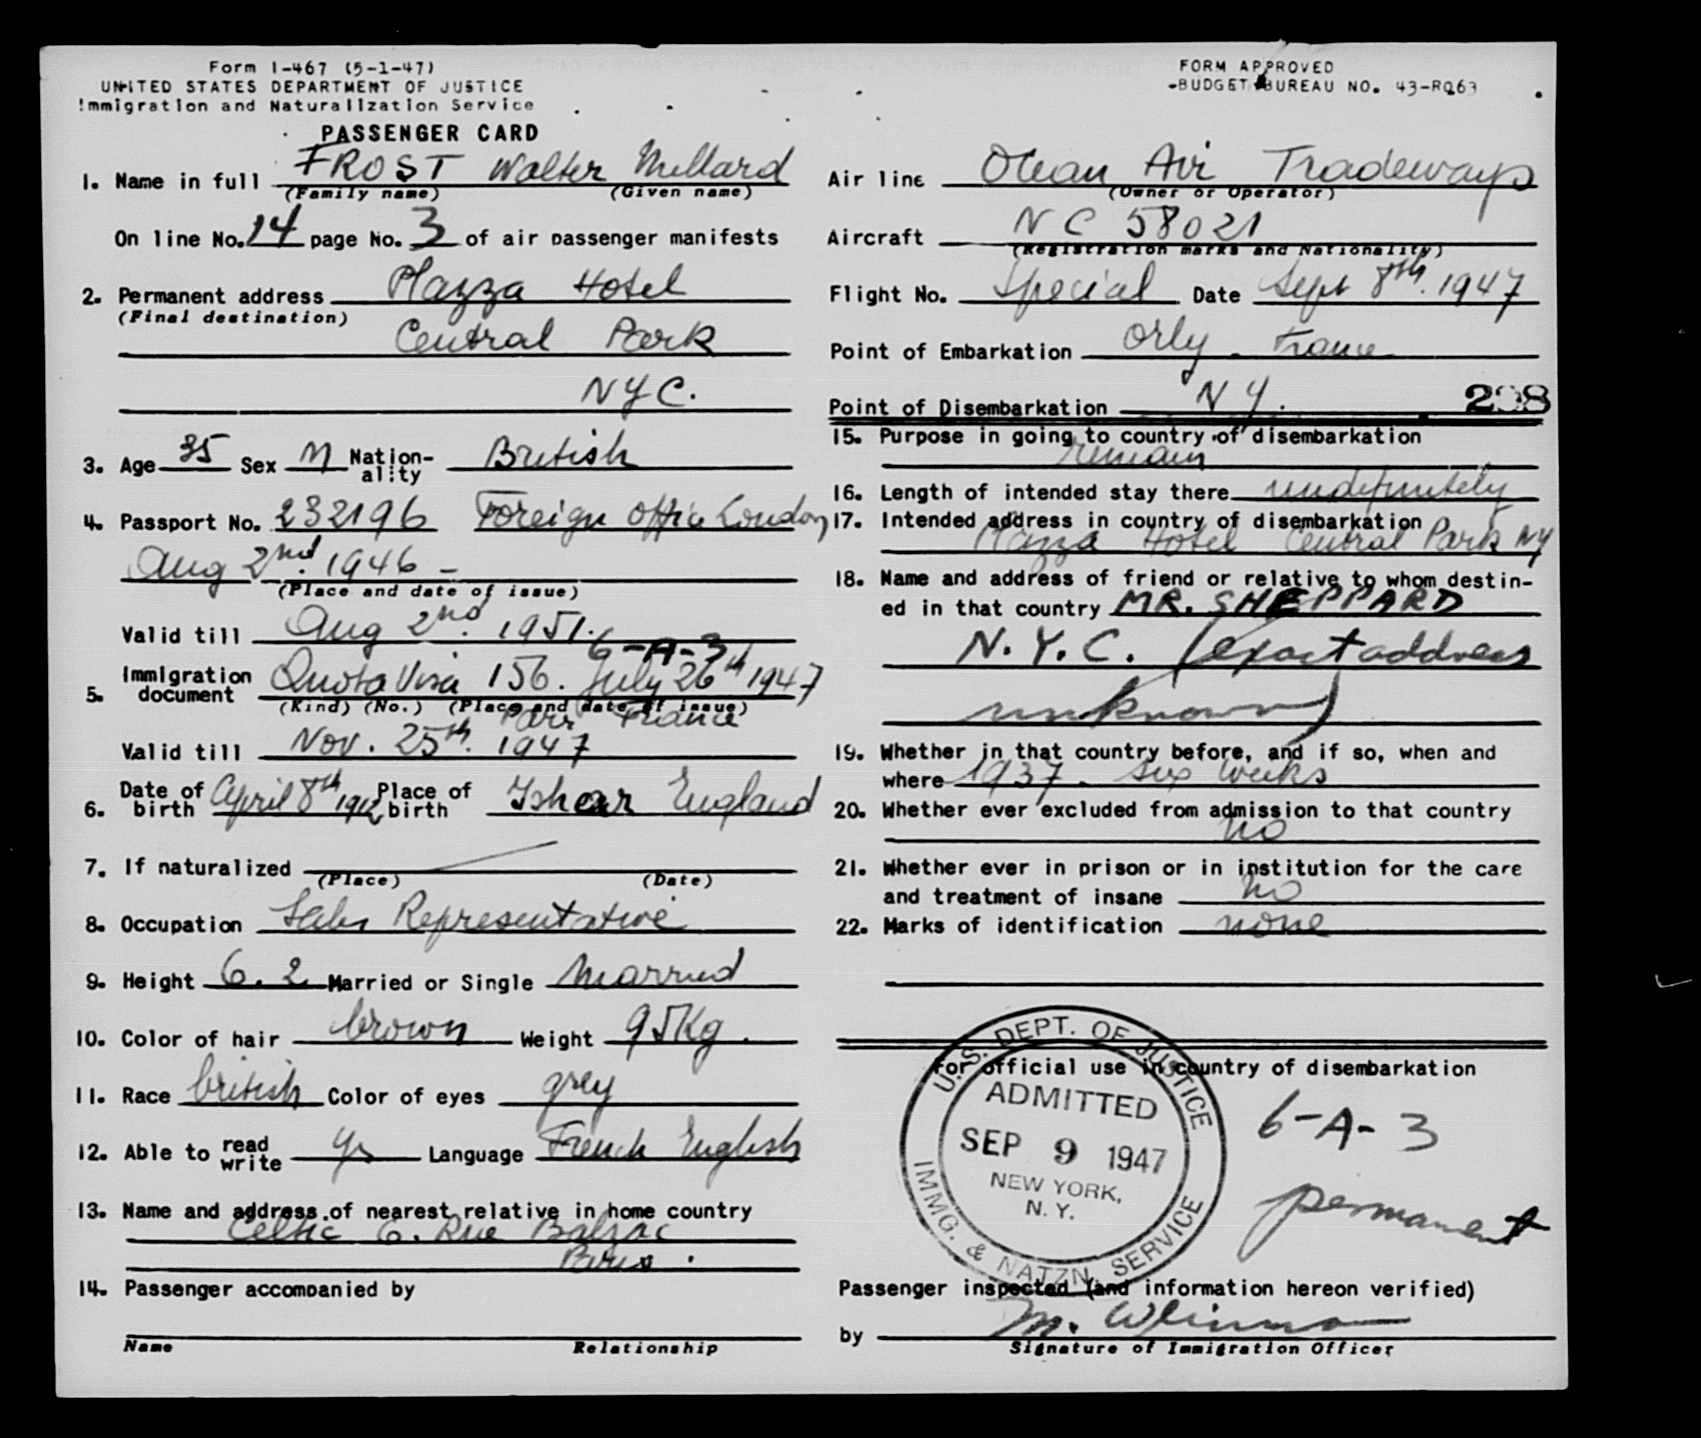 Form I-467 (5-1-47)
UNITED STATES DEPARTMENT OF JUSTICE
Immigration and Naturalization Service
PASSENGER CARD
1. Name in full FROST Walter Millard
(Family name) (Given name)
On line No. 14 page No. 3 of air passenger manifests
2. Permanent address Plazza Hotel
(Final destination)
Central Park
NYC.
3. Age 35 Sex M Nation-ality British
4. Passport No. 232196 Foreign Office London
Aug 2nd. 1946 -
(Place and date of issue)
Valid till Aug 2nd. 1951.
6-A-3
5. Immigration document Quota Visa 156. July 26th 1947
(Kind) (No.) (Place and date of issue)
France
Valid till Nov. 25th. 1947
6. Date of birth April 8th 1912 Place of birth England
7. If naturalized
(Place) (Date)
8. Occupation Sales Representative
9. Height 6.2 Married or Single Married
10. Color of hair brown Weight 95Kg.
11. Race british Color of eyes grey
12. Able to read write yes Language French English
13. Name and address of nearest relative in home country
Celtic 6. Rue Balzac
Paris.
14. Passenger accompanied by
Name Relationship
FORM APPROVED
BUDGET BUREAU NO. 43-R063
Air line Ocean Air Tradeways
(Owner or Operator)
Aircraft NC 58021
(Registration marks and Nationality)
Flight No. Special Date Sept 8th. 1947
Point of Embarkation Orly - France
Point of Disembarkation N Y. 298
15. Purpose in going to country of disembarkation
remain
16. Length of intended stay there undefinitely
17. Intended address in country of disembarkation
Plazza Hotel Central Park NY
18. Name and address of friend or relative to whom destin-
ed in that country MR. SHEPPARD
N.Y.C. (exact address
unknown)
19. Whether in that country before, and if so, when and
where 1937. six weeks
20. Whether ever excluded from admission to that country
no
21. Whether ever in prison or in institution for the care
and treatment of insane no
22. Marks of identification none
For official use in country of disembarkation
U.S. DEPT. OF JUSTICE
ADMITTED
SEP 9 1947
NEW YORK,
N. Y.
IMMG. & NATZN. SERVICE
6-A-3
permanent
Passenger inspected (and information hereon verified)
by M.
Signature of Immigration Officer